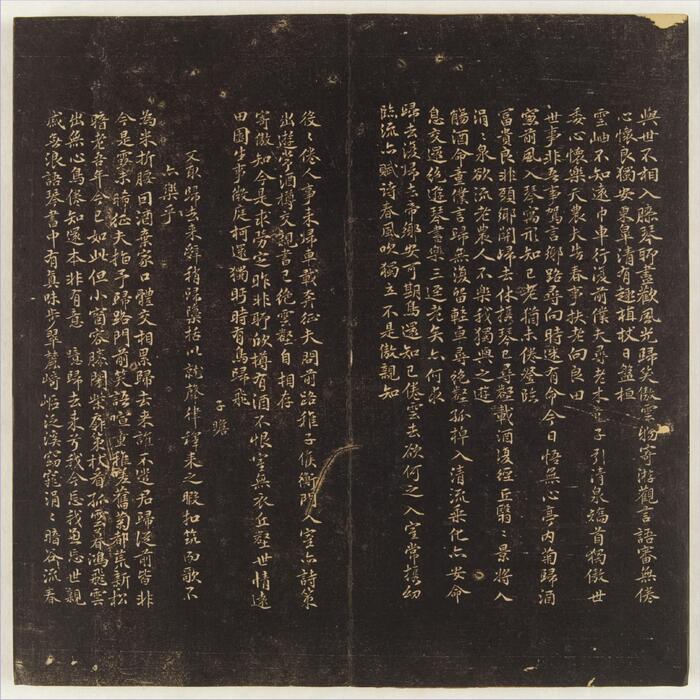 與世不相入膝琴聊盡歡風光歸笑傲雲物寄游觀言語審無倦
心懷良獨安東皐清有趣植杖日盤桓
雲岫不知遠巾車行復前僕夫尋老木童子引清泉矯首獨傲世
委心懷樂天農夫告春事扶老向良田
世事非吾事駕言鄉路尋向時迷有命今日悟無心亭內菊歸酒
窻前風入琴寓形知已老猶未倦登臨
富貴良非願鄉關歸去休携琴已尋壑載酒復經丘翳〻景將入
涓〻泉欲流老農人不樂我獨與之遊
觴酒命童僕言歸無復留輕車尋絶壑孤棹入清流乘化亦安命
息交還絶遊琴書樂三逕老矣亦何求
歸去復歸去帝鄉安可期鳥還知已倦雲去欲何之入室常携幼
臨流亦賦詩春風吹獨立不是傲親知
役〻倦人事来歸車載奔征夫問前路稚子候衡門入室亦詩策
出遊常酒樽交親書已絶雲壑自相存
寄傲知今是求勞定昨非聊欣樽有酒不恨室無衣丘壑世情遠
田園生事微庭柯還獨眄時有鳥歸飛
子瞻
又取歸去来辭稍檃括以就聲律釋耒之暇扣而歌不
亦樂乎
為米折腰因酒棄家口體交相累歸去来誰不遣君歸從前皆非
今是露未晞征夫指予歸路門前笑語喧童稚嗟舊菊都荒新松
暗老吾年今已如此但小窗容膝閉柴扉策杖看孤雲暮鴻飛雲
出無心鳥倦知還本非有意 噫歸去来兮我今忘我兼忘世親
戚無浪語琴書中有真味步翠麓崎嶇泛溪窈窕涓〻暗谷流春